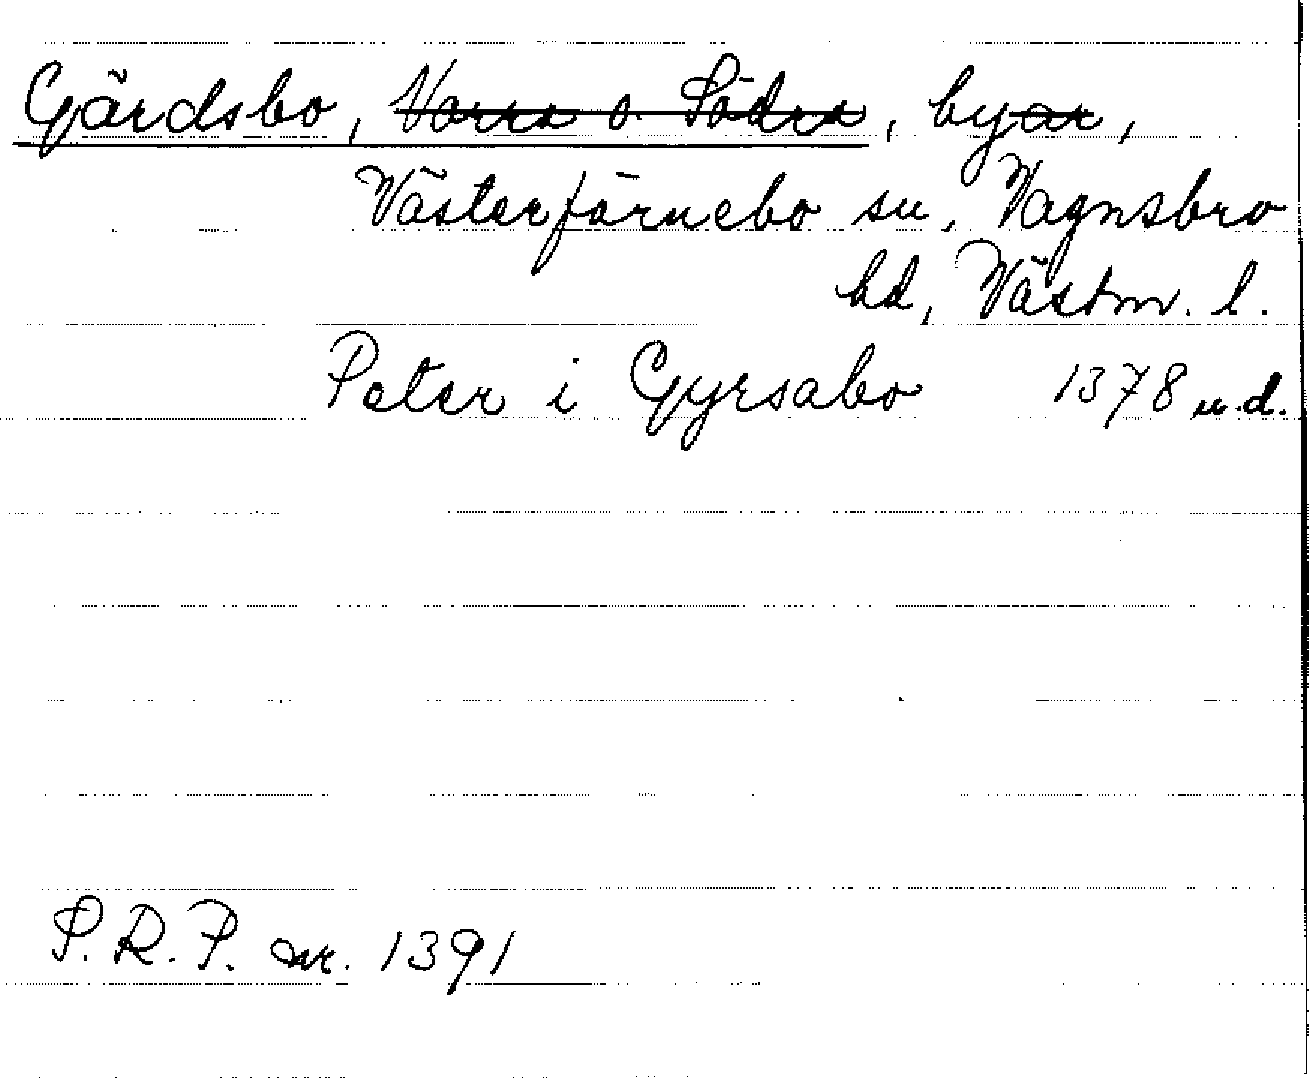 Gärdsbo, Norra o. Södra, byar,
Västerfärnebo sn, Vagnsbro
hd, Västm. l.
Peter i Gyrsabo 1378 u.d.
S.R.P. nr. 1391